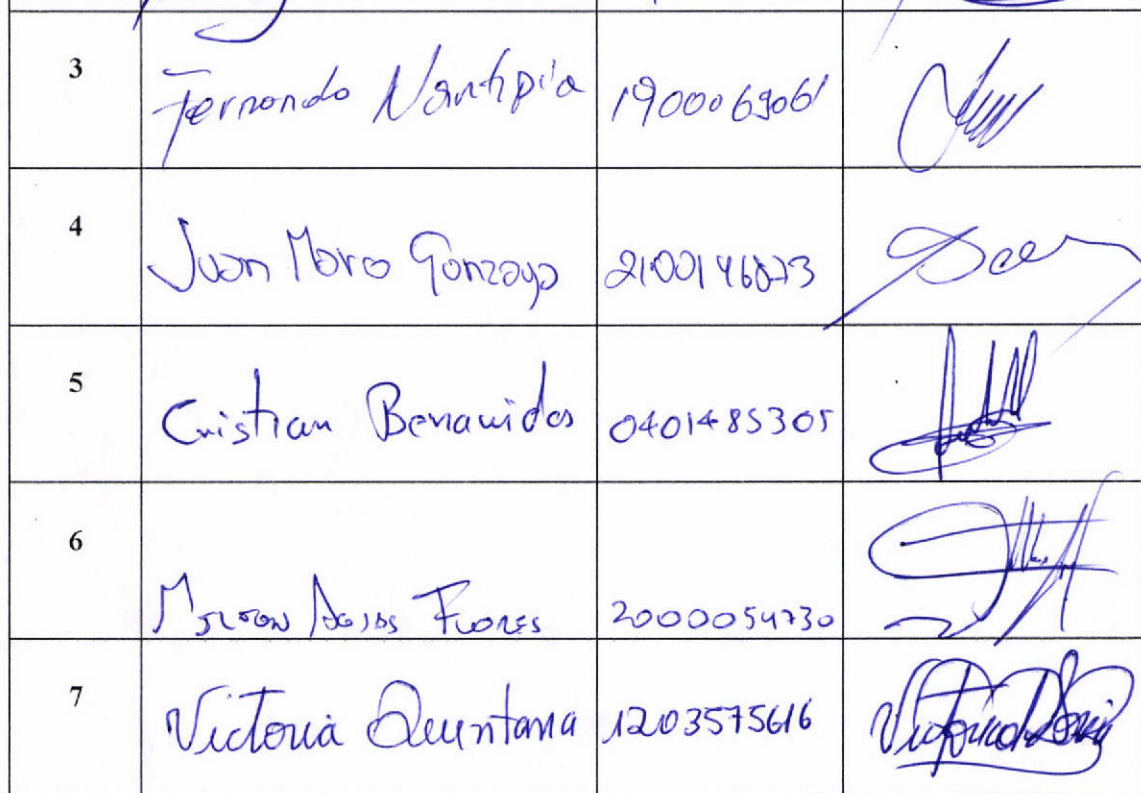 3 Fernando Nantipia 1900069061
4 Juan Moro Gonzaga
5 Cristian Benavides 0401485305
6 Flores 2000054730
7 Victoria Quintana 1203575616